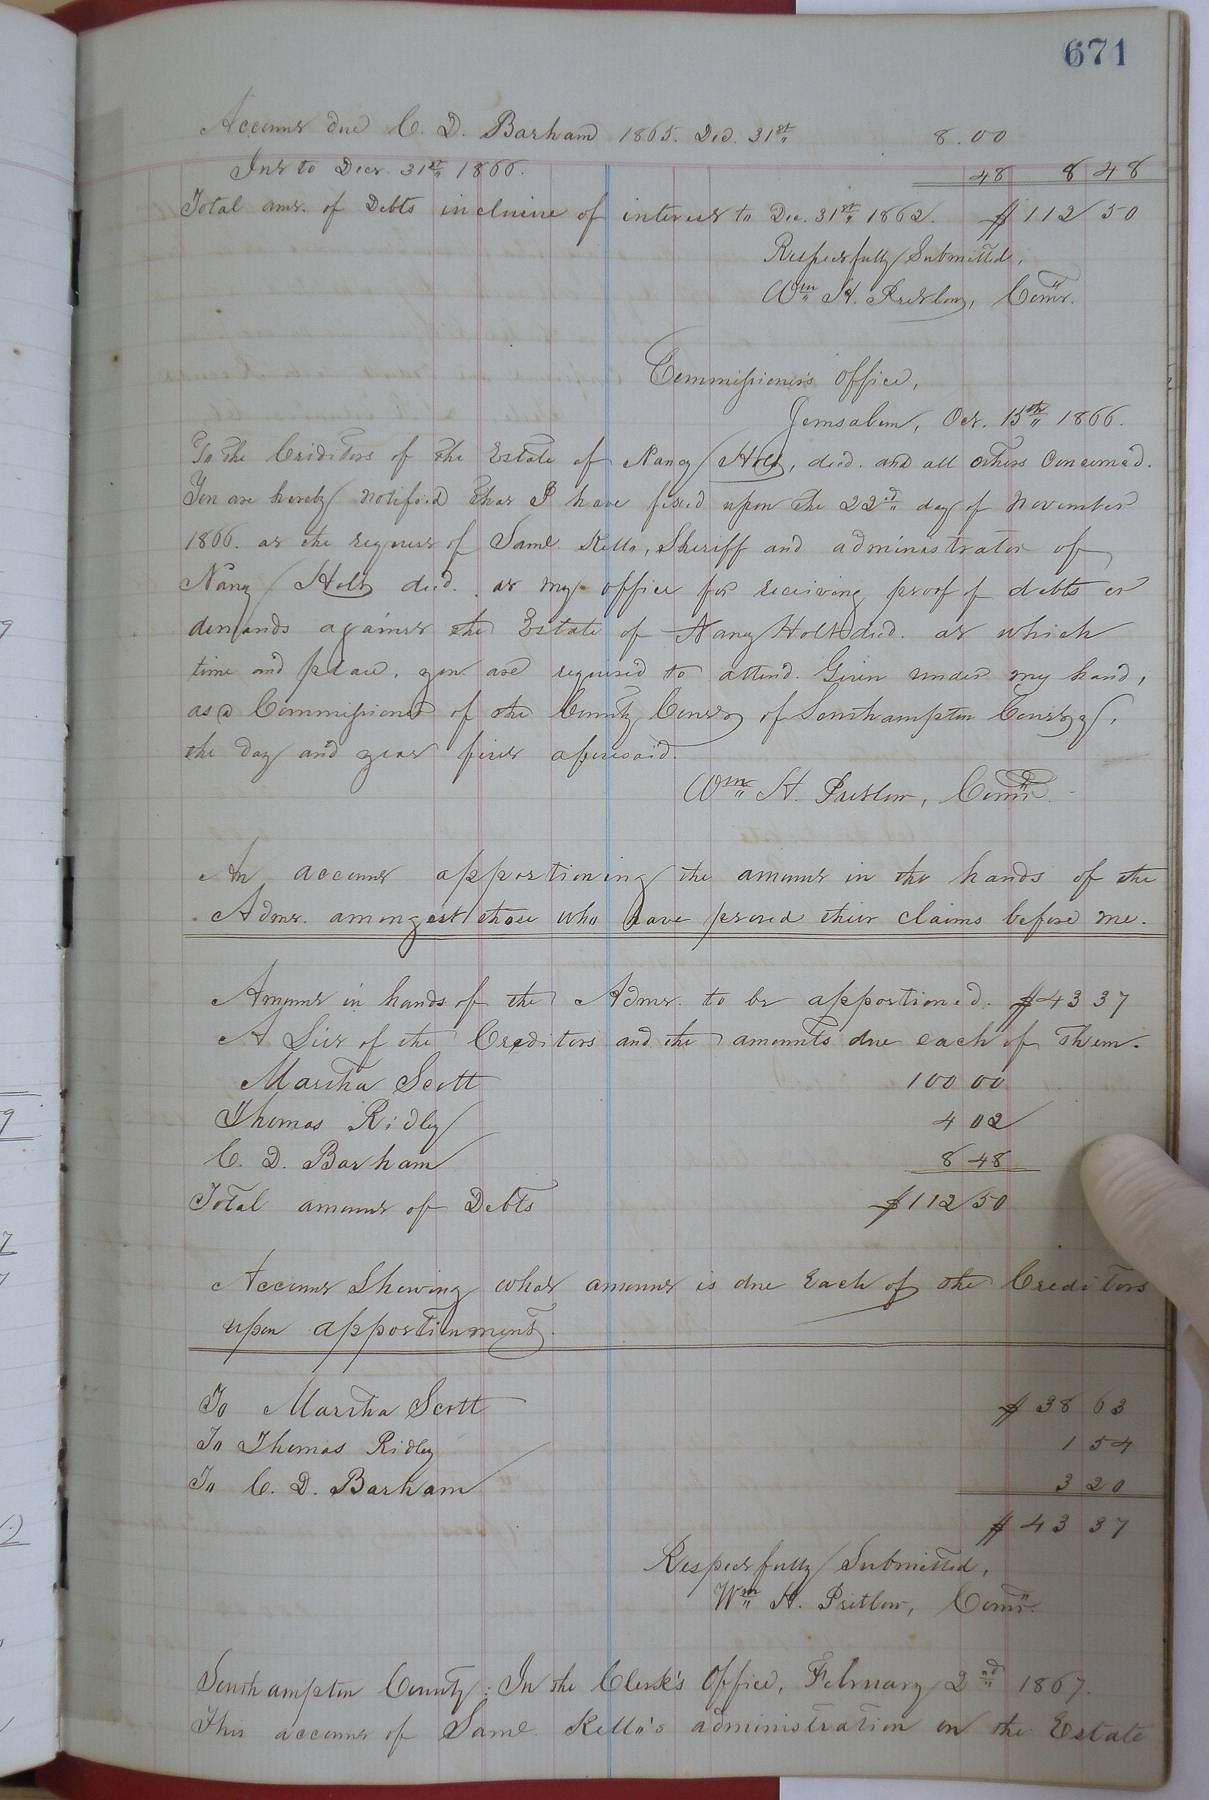 671
Account due C. D. Barham 1865. Dec. 31st 8.00
Int to Decr. 31st 1866. 48 8 48
Total amt. of Debts inclusive of interest to Dec. 31st 1862. $112 50
Respectfully Submitted,
Wm H. Pretlow, Comr.
Commissioner's Office,
Jerusalem, Oct. 15th 1866.
To the Creditors of the Estate of Nancy Holt, decd. and all others Concerned.
You are hereby notified that I have fixed upon the 22nd day of November
1866. at the request of Saml. Kello, Sheriff and administrator of
Nancy Holt decd. at my office for receiving proof of debts or
demands against the Estate of Nancy Holt decd. at which
time and place, you are required to attend. Given under my hand,
as a Commissioner of the County Court of Southampton County,
the day and year first aforesaid.
Wm H. Pretlow, Comr.
An account apportioning the amount in the hands of the
Admr. amongst those who have proved their claims before me.
Amount in hands of the Admr. to be apportioned. $43 37
A List of the Creditors and the amounts due each of them.
Martha Scott 100 00
Thomas Ridley 4 02
C. D. Barham 8 48
Total amount of Debts $112 50
Account Shewing what amount is due Each of the Creditors
upon apportionment.
To Martha Scott $38 63
To Thomas Ridley 1 54
To C. D. Barham 3 20
$43 37
Respectfully Submitted,
Wm H. Pretlow, Comr.
Southampton County: In the Clerk's Office, February 2nd 1867.
This account of Saml. Kello's administration on the Estate